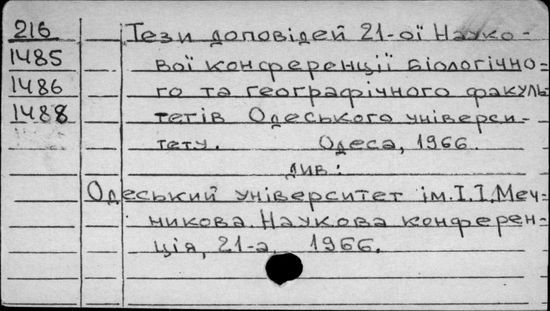 216 Тези доповідей 21-ої Науко-
1485 вої конференції біологічно-
1486 го та географічного факуль-
1488 тетів Одеського універси-
тету. Одеса, 1966.
див:
Одеський університет ім.І.І.Меч-
никова. Наукова конферен-
ція, 21-а, 1966.